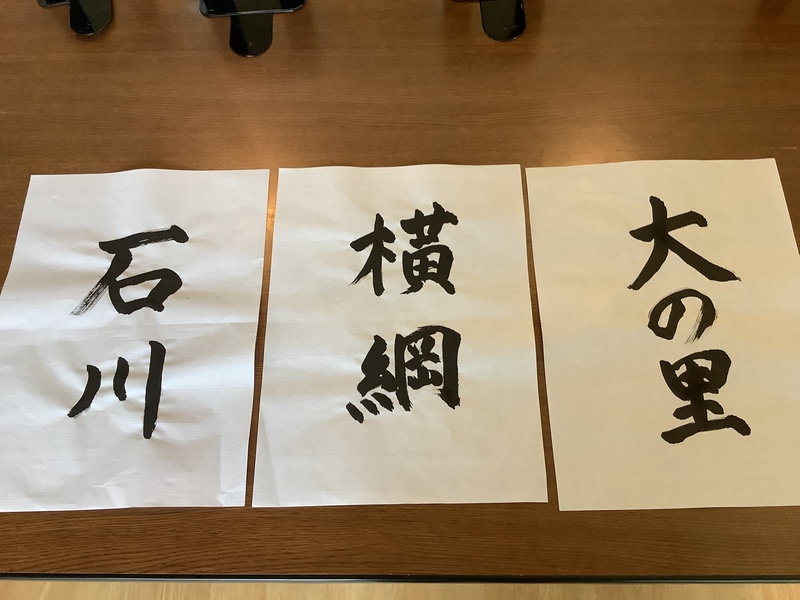 大の里
横綱
石川